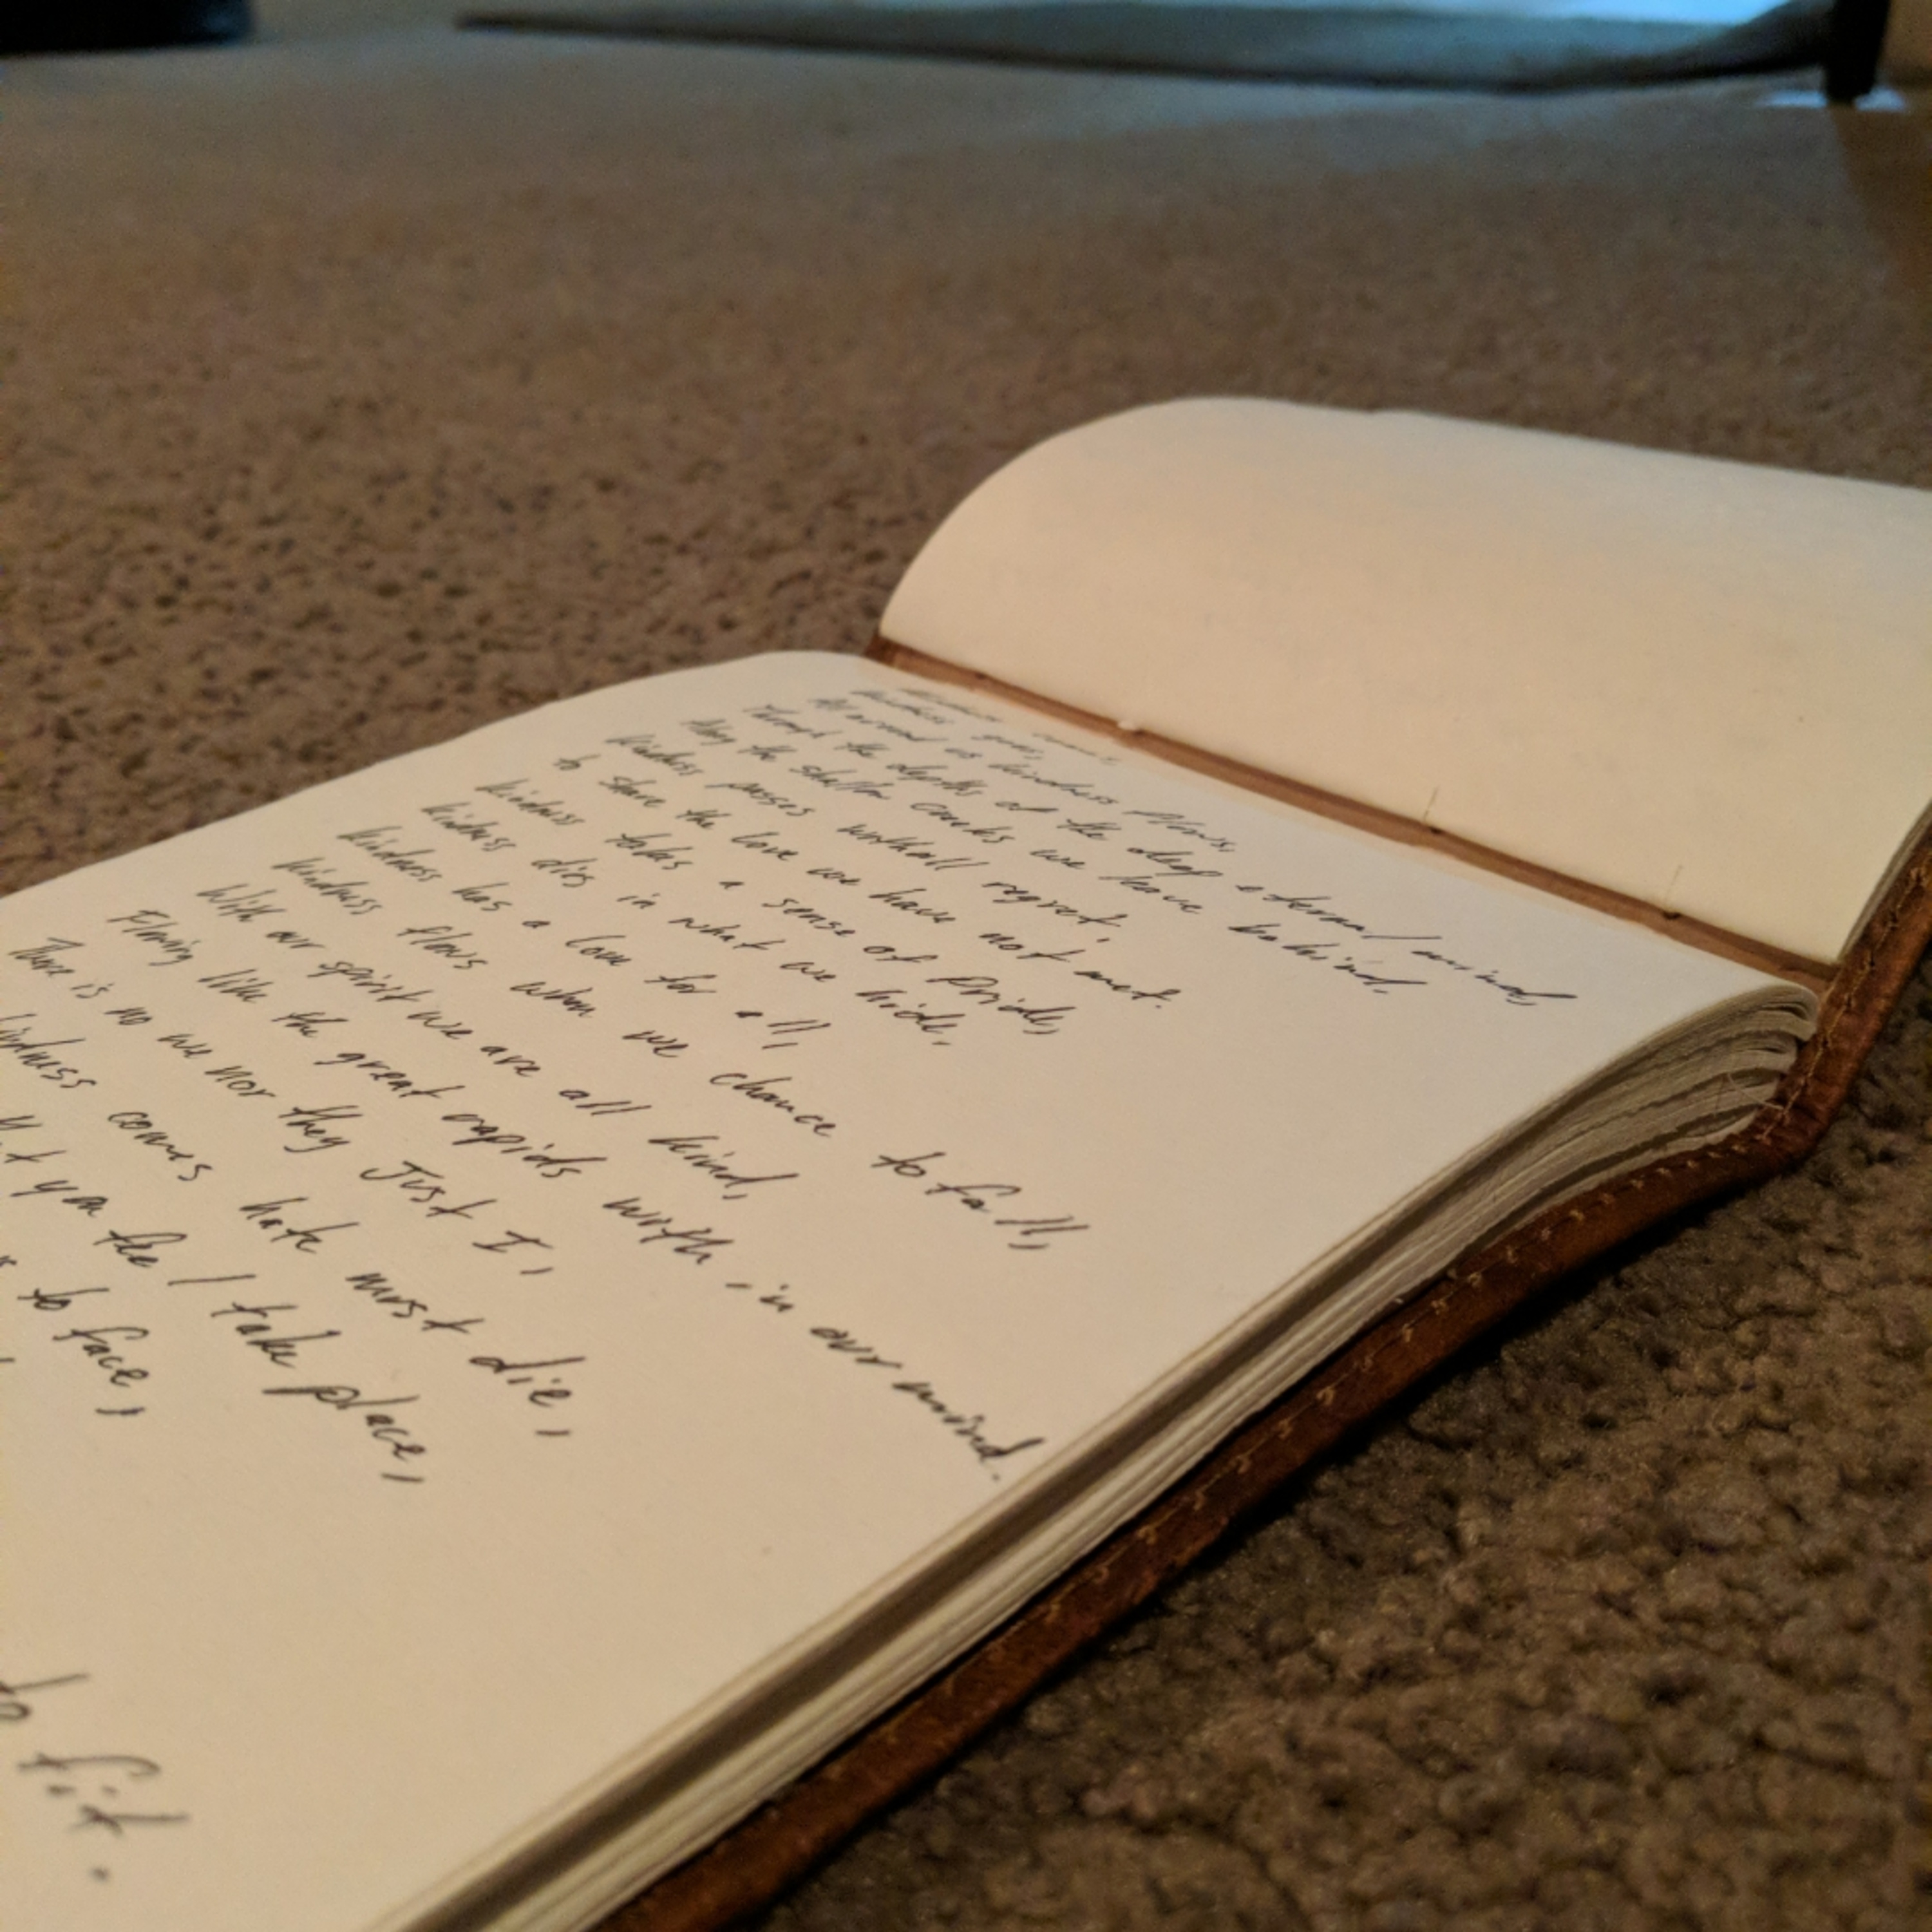 kindness goes,
All around us kindness flows,
Through the depths of the deep eternal mind,
Along the shallow creeks we leave behind,
kindness passes withall regret.
to share the love we have not met.
kindness takes a sense of Pride,
kindness dies in what we hide,
kindness has a love for all,
kindness flows when we chance to fall,
With our spirit we are all kind,
Flowing like the great rapids with, in our mind.
There is no we nor they Just I,
kindness comes hate must die,
you the I take place,
to face,
to fit.